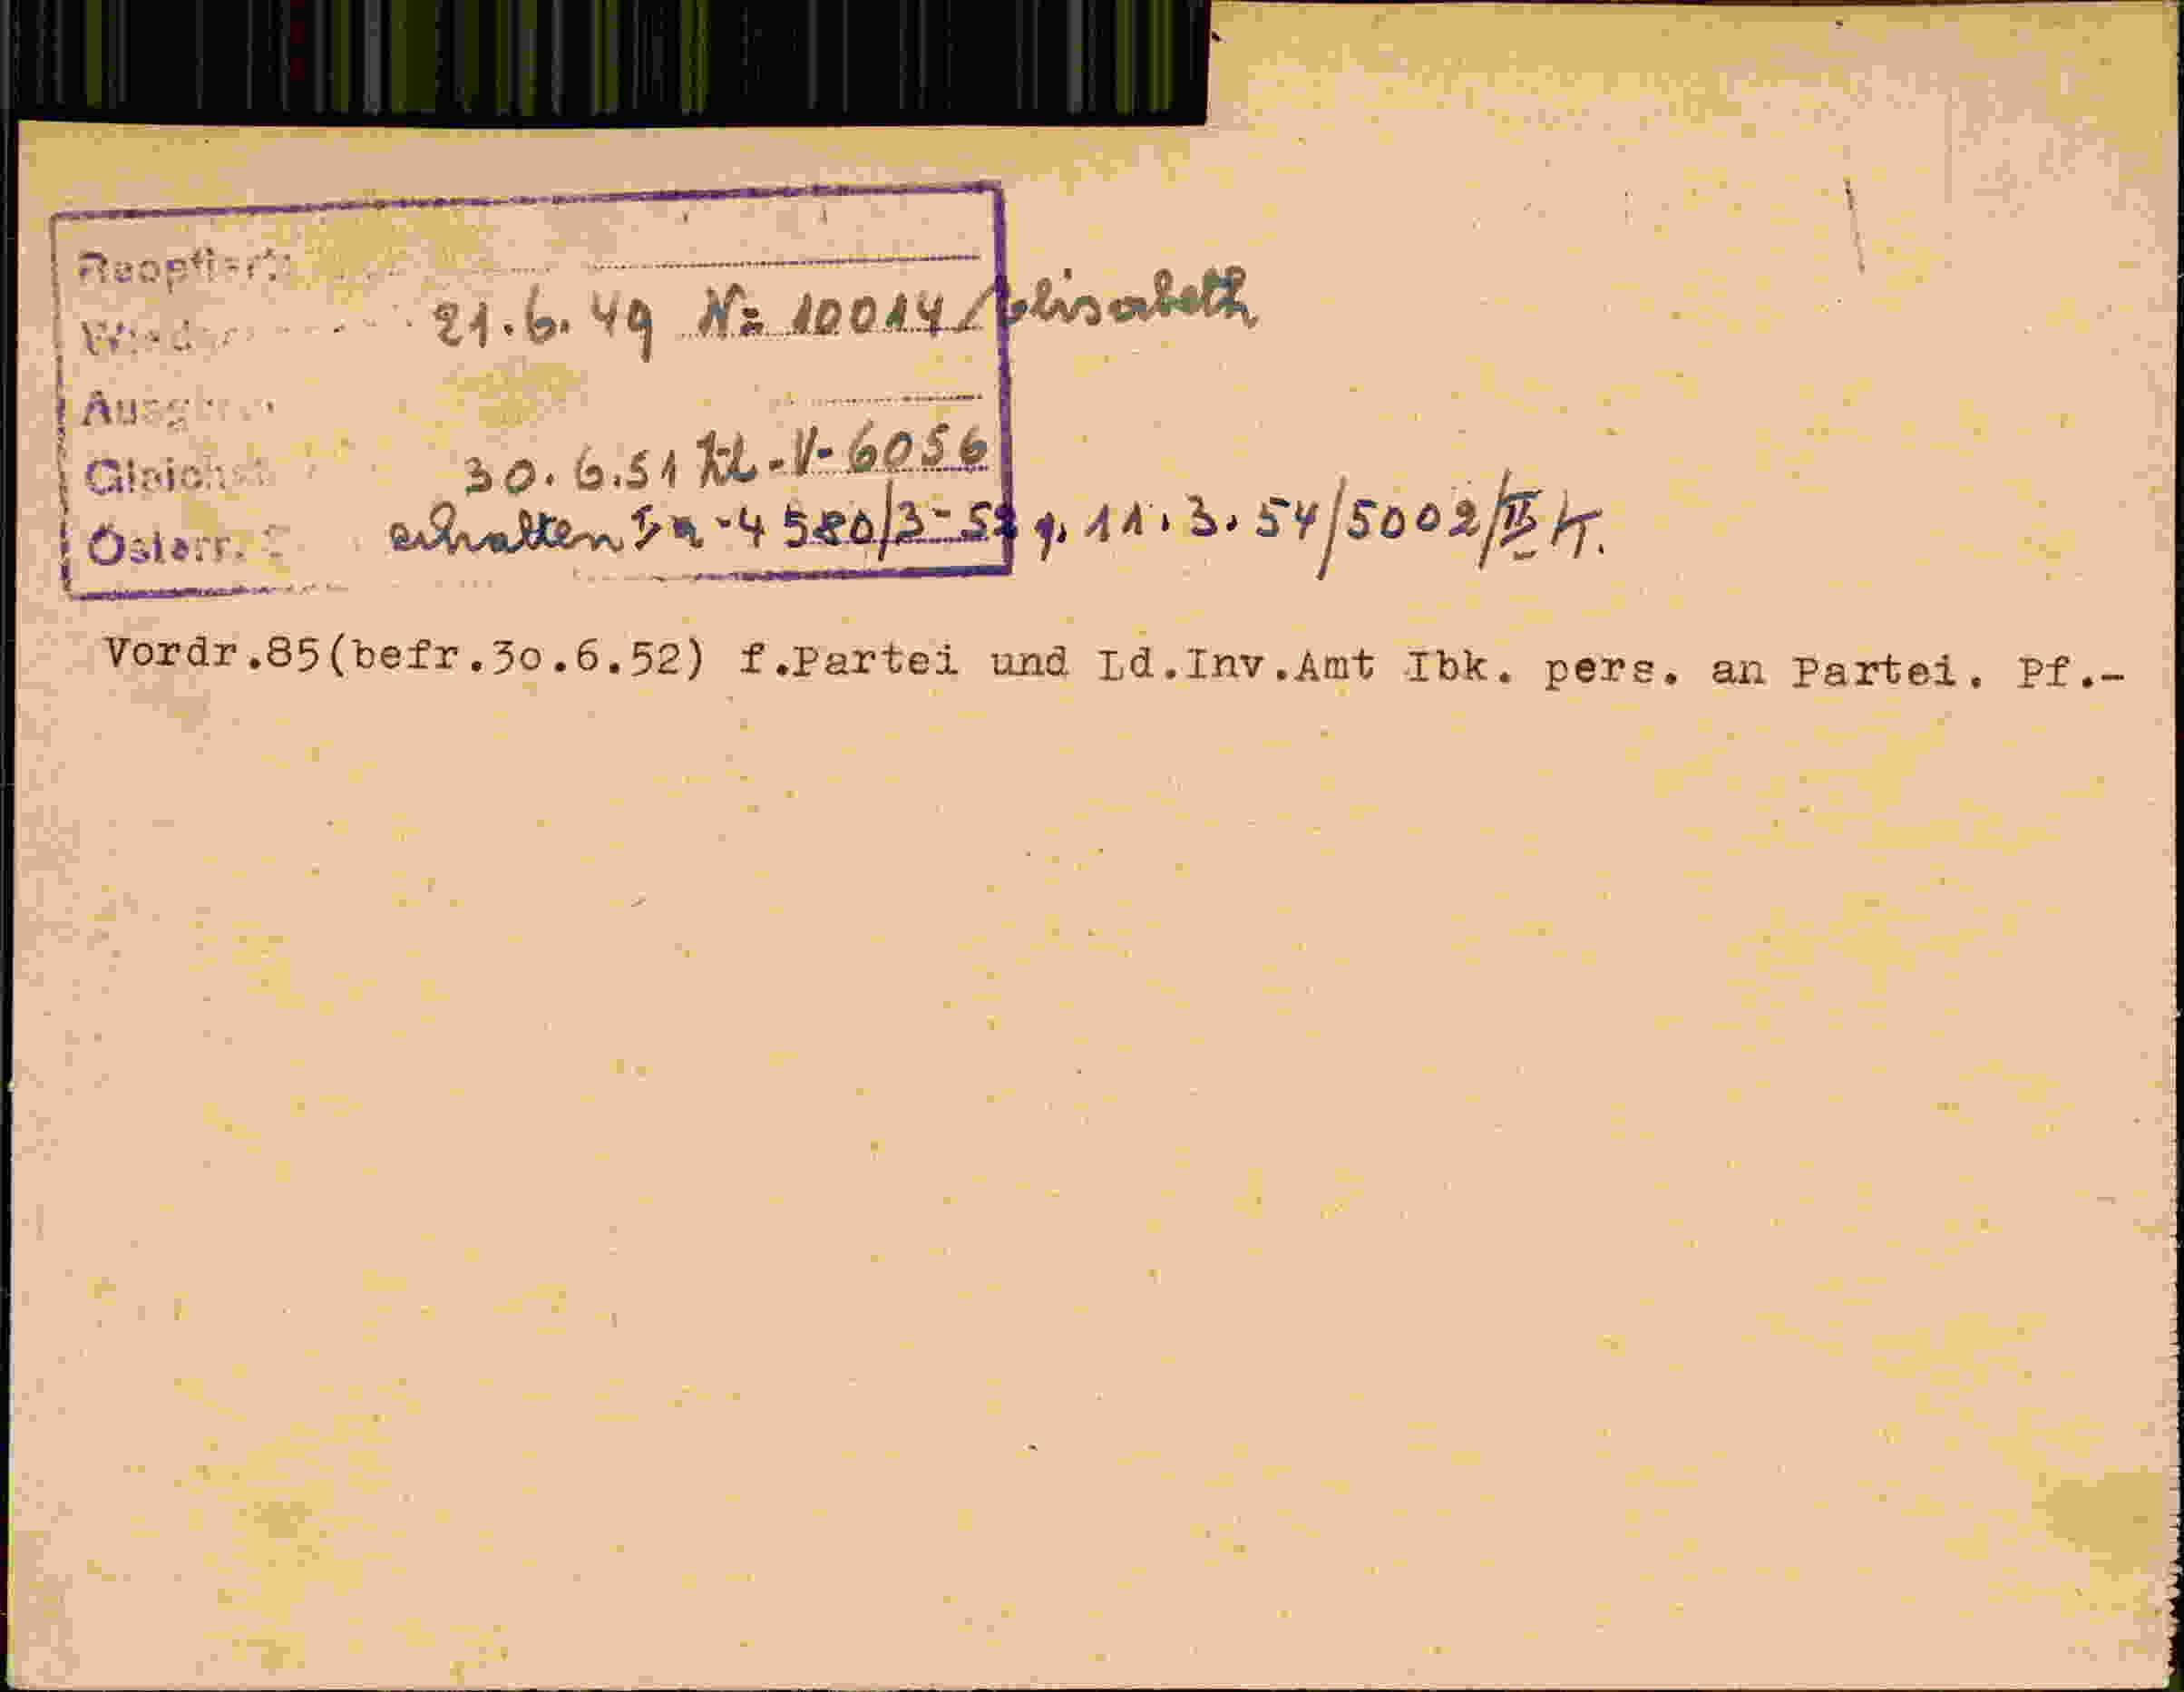 Reoptiert:
21.6.49 No 10014/Elisabeth
30.6.51 Zl.-V-6056
Österr. erhalten Ia-4580/3-52 v. 11.3.54/5002/II K.
Vordr.85(befr.3o.6.52) f.Partei und Ld.Inv.Amt Ibk. pers. an Partei. Pf.-